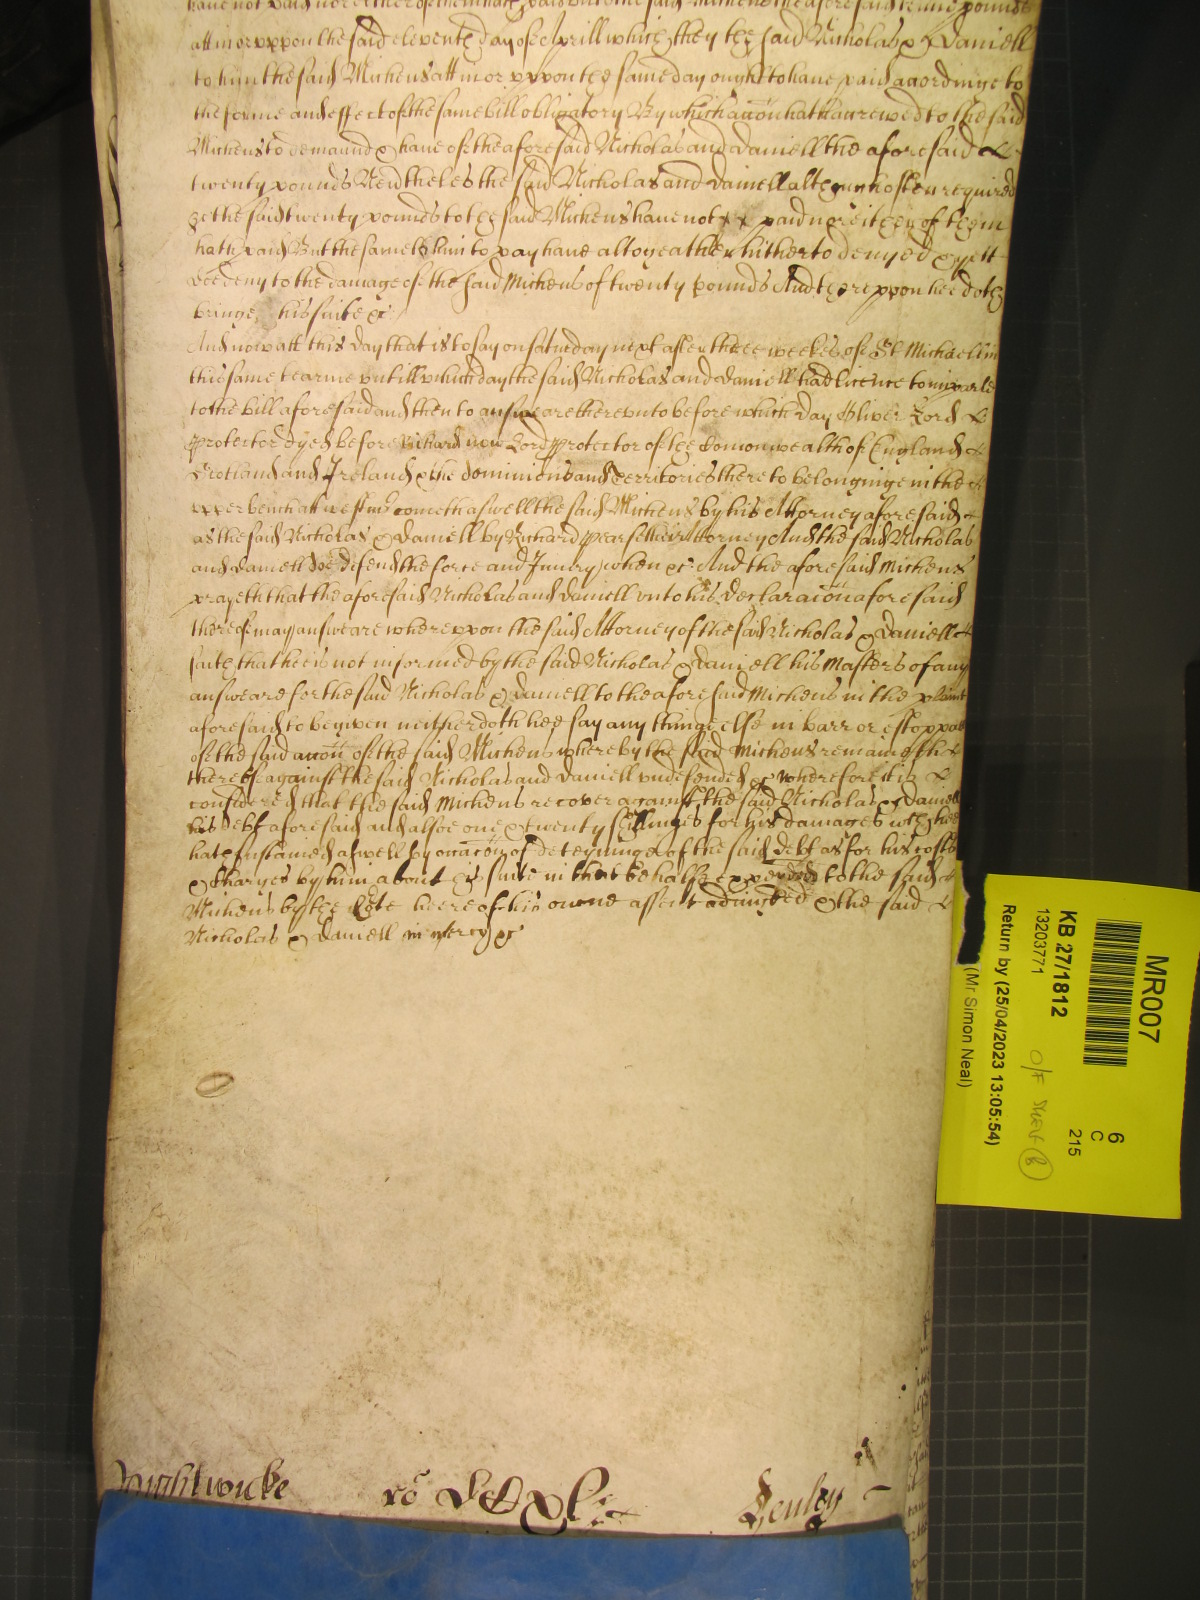 have not paid nor either of them hath paid unto the said Michens the aforesaid tenne pounds
att in or uppon the said eleventh day of Aprill which they the said Nicholas & Daniell
to him the said Michens att in or uppon the same day ought to have paid accordinge to
the forme and effect of the same bill obligatory By which accōn hath accrewed to the said
Michens to demaund & have of the aforesaid Nicholas and Daniell the aforesaid
twenty pounds Nevertheles the said Nicholas and Daniell although often required
the said twenty pounds to the said Michens have not paid nor either of them
hath paid But the same to him to pay have altogeather hitherto denyed & yett
doe deny to the damage of the said Michens of twenty pounds And thereuppon hee doth
bringe his suite &c
And now att this day that is to say on saturday next after three weekes of St Michaell in
this same tearme untill which day the said Nicholas and Daniell had licence to imparle
to the bill aforesaid and then to answeare thereunto before which day Oliver Lord
Protector dyed before Richard now Lord Protector of the Comonwealth of England
Scotland and Ireland & the dominions and Territories thereto belonginge in the
upper bench att Westmr cometh aswell the said Michens by his Attorney aforesaid
as the said Nicholas & Daniell by Richard Pearse their Attorney And the said Nicholas
and Daniell doe defend the force and Iniury when &c And the aforesaid Michens
prayeth that the aforesaid Nicholas and Daniell unto his declaracōn aforesaid
thereof may answeare whereuppon the said Attorney of the said Nicholas & Daniell
saith that hee is not informed by the said Nicholas & Daniell his Masters of any
answeare for the said Nicholas & Daniell to the aforesaid Michens in the plaint
aforesaid to be given neither doth hee say any thinge else in barr or estoppall
of the said accōn of the said Michens whereby the said Michens remaineth
thereof against the said Nicholas and Daniell undefended &c Wherefore it is
considered that the said Michens recover against the said Nicholas & Daniell
his debt aforesaid and alsoe one & twenty shillinges for his damages which hee
hath sustained aswell by occacōn of deteyninge of the said debt as for his costs
& charges by him about his suite in that behalfe expended to the said
Michens by the Cort heere of his owne assent adiudged & the said
Nicholas & Daniell in mercy &c
Wightwicke
Henley
MR007
KB 27/1812
13203771
6
C
215
O/F SHELF B
Return by (25/04/2023 13:05:54)
(Mr Simon Neal)